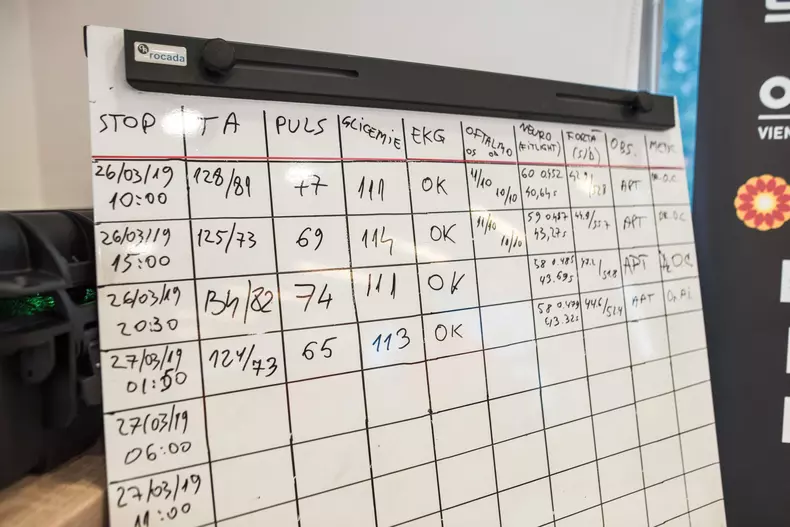 rocada
STOP TA PULS GLICEMIE EKG OFTALMO NEURO FORȚĂ OBS. MEDIC
OS OD (FITLIGHT) (S/D)
26/03/19 128/81 77 111 OK 11/10 60 0.452 APT DR. O.C.
10:00 10/10 40,64s
26/03/19 125/73 69 114 OK 11/10 59 0.487 44.9/55.7 APT DR. O.C.
15:00 10/10 43,27s
26/03/19 134/82 74 111 OK 58 0.485 APT O.C.
20:30 43.69s
27/03/19 124/73 65 113 OK 58 0.479 44.6/52.4 APT
01:50 43.32s
27/03/19
06:00
27/03/19
11:00
VIEN